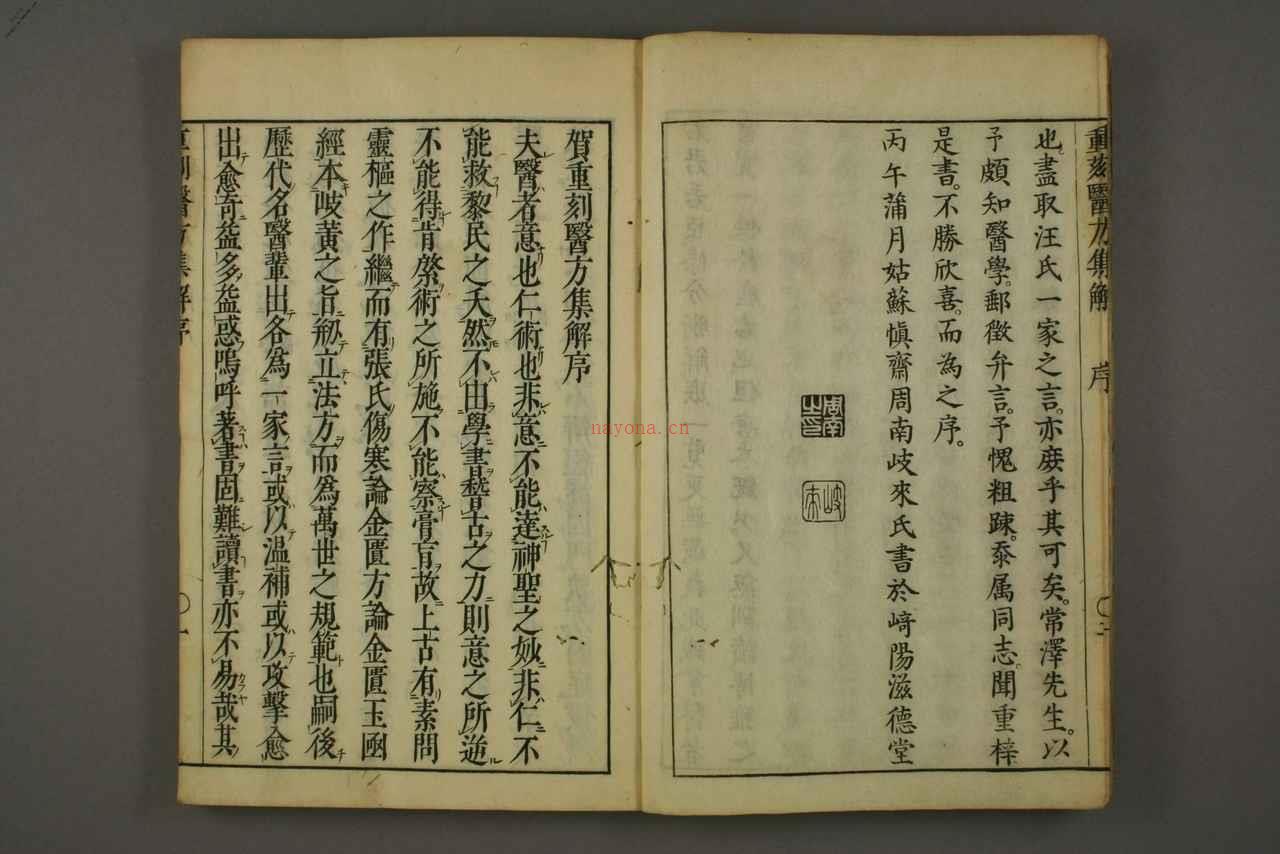 重刻醫方集解 序 〇二
也盡取汪氏一家之言。亦庶乎其可矣。常澤先生。以
予頗知醫學。郵徵弁言。予愧粗踈。忝属同志。聞重梓
是書。不勝欣喜。而為之序。
丙午蒲月姑蘇慎齋周南岐來氏書於﨑陽滋德堂
周南之印
岐來
賀重刻醫方集解序
夫醫者意也仁術也非意不能達神聖之妙非仁不
能救黎民之夭然不由學書稽古之力則意之所遊
不能得肯綮術之所施不能察膏肓故上古有素問
靈樞之作繼而有張氏傷寒論金匱方論金匱玉凾
經本岐黃之旨剏立法方而爲萬世之規範也嗣後
歷代名醫輩出各爲一家言或以温補或以攻擊愈
出愈奇益多益惑嗚呼著書固難讀書亦不易哉其
重刻醫方集解序 〇一
nayona.cn